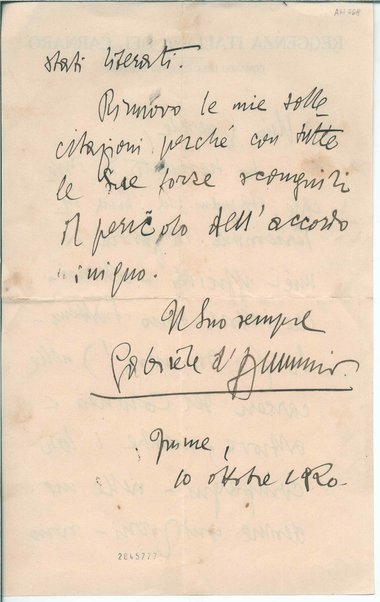 AM 264
REGGENZA ITALIANA DEL CARNARO
stati liberati.
Rinnovo le mie solle
citazioni perché con tutte
le Sue forze scongiuri
il pericolo dell'accordo
iniquo.
Il Suo sempre
Gabriele d'Annunzio.
Fiume,
10 ottobre 1920.
2045777